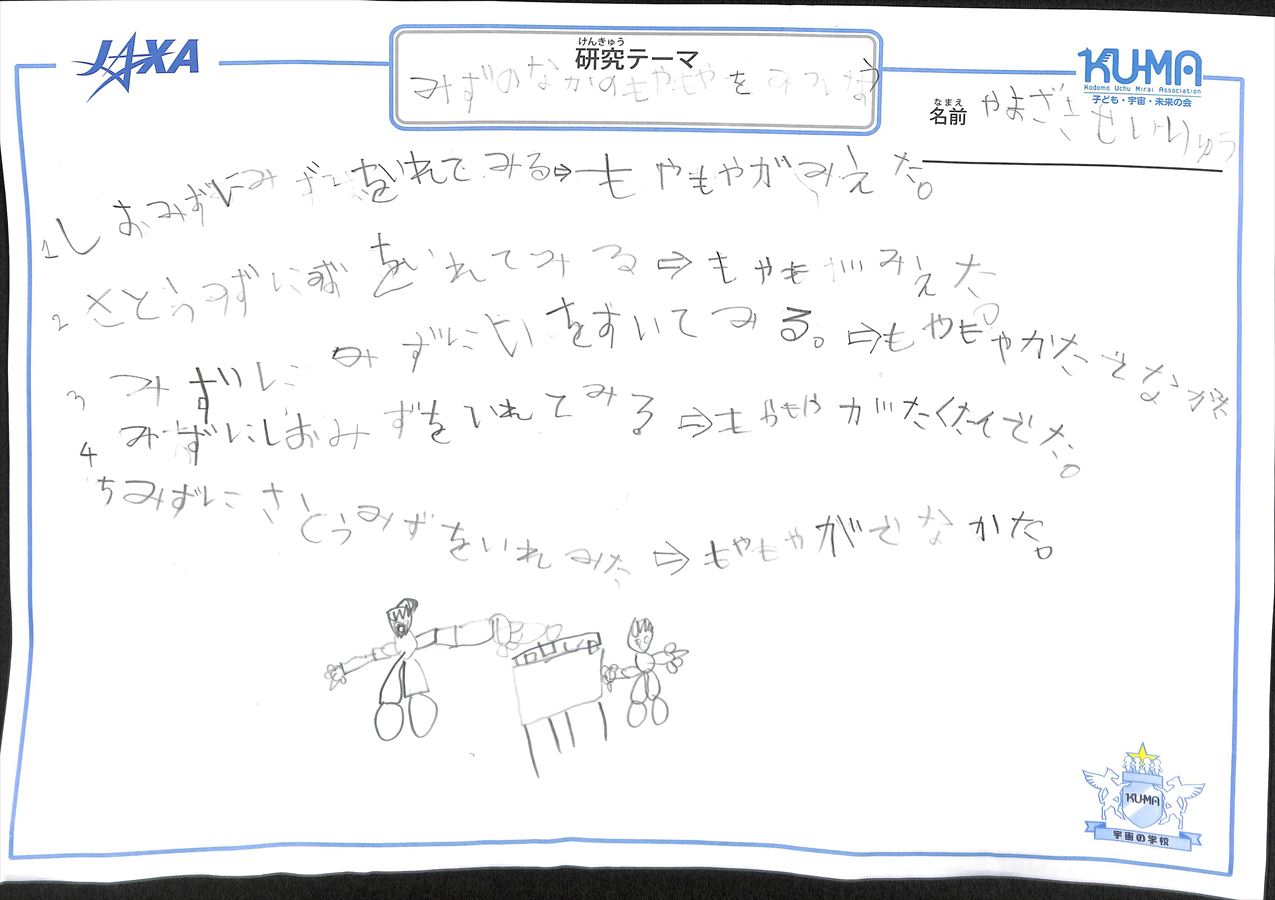 JAXA
けんきゅう
研究テーマ
みずのなかのもやもやを
KU-MA
Kodomo Uchu Mirai Association
子ども・宇宙・未来の会
なまえ
名前 やまざき せいりゅう
1 しおみずにみずをいれてみる⇒もやもやがみえた。
2 さとうみずにみずをいれてみる⇒もやもがみえた。
3 みずにみずにといをすいてみる。⇒もやもやがたでなが
4 みずにしおみずをいれてみる⇒もやもやがたくたくでた。
5 みずにさとうみずをいれみた⇒もやもやがでなかた。
KU-MA
宇宙の学校